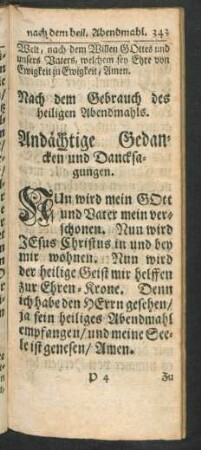 nach dem heil. Abendmahl. 343
Welt, nach dem Willen GOttes und
unsers Vaters, welchem sey Ehre von
Ewigkeit zu Ewigkeit, Amen.
Nach dem Gebrauch des
heiligen Abendmahls.
Andächtige Gedan-
cken und Dancksa-
gungen.
NUn wird mein GOtt
und Vater mein ver-
schonen. Nun wird
JEsus Christus in und bey
mir wohnen. Nun wird
der heilige Geist mir helffen
zur Ehren-Krone. Denn
ich habe den HErrn gesehen/
ja sein heiliges Abendmahl
empfangen/ und meine See-
le ist genesen/ Amen.
P 4 Zu